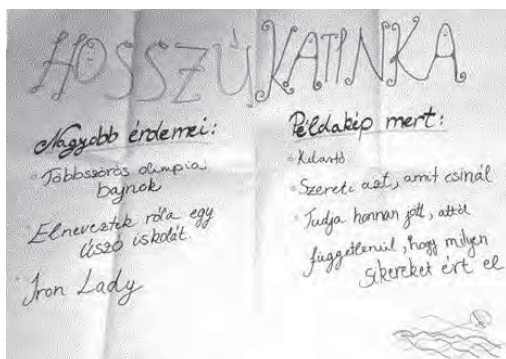 HOSSZÚ KATINKA
Nagyobb érdemei:
Többszörös olimpia
bajnok
Elneveztek róla egy
úszó iskolát
Iron Lady
Példakép mert:
Kitartó
Szereti azt, amit csinál
Tudja honnan jött, attól
függetlenül, hogy milyen
sikereket ért el